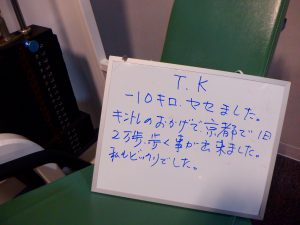 T.K
-10キロ、ヤセました。
キントレのおかげで、京都で1日
2万歩、歩く事が出来ました。
私もビックリでした。